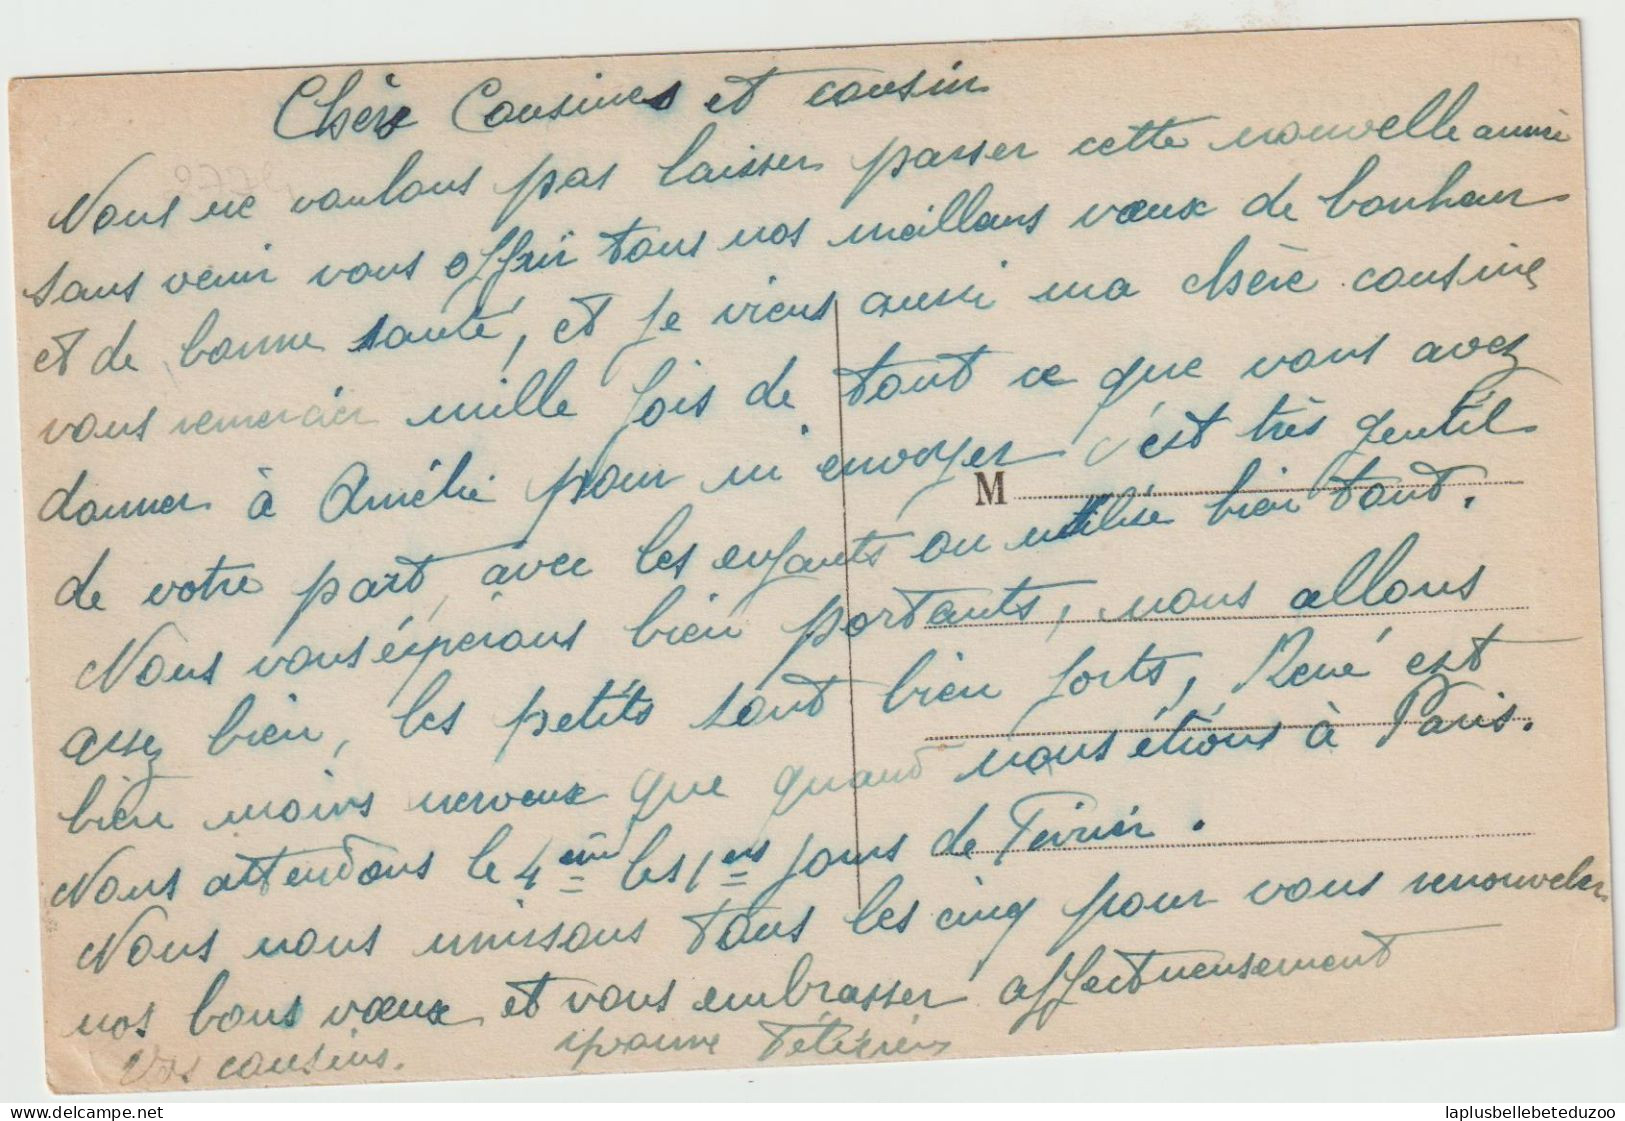 Chère Cousines et cousin
Nous ne voulons pas laisser passer cette nouvelle année
sans venir vous offrir tous nos meilleurs vœux de bonheur
et de bonne santé, et je viens aussi ma chère cousine
vous remercier mille fois de tout ce que vous avez
donner à Amélie pour m'envoyer c'est très gentil
M
de votre part, avec les enfants on utilise bien tout.
Nous vous éspérons bien portants, nous allons
assez bien, les petits sont bien forts, René est
bien moins nerveux que quand nous étions à Paris.
Nous attendons le 4ème les 1ers jours de Février.
Nous nous unissons tous les cinq pour vous renouveler
nos bons vœux et vous embrasser affectueusement
Vos cousins. Yvonne
laplusbellebeteduzoo